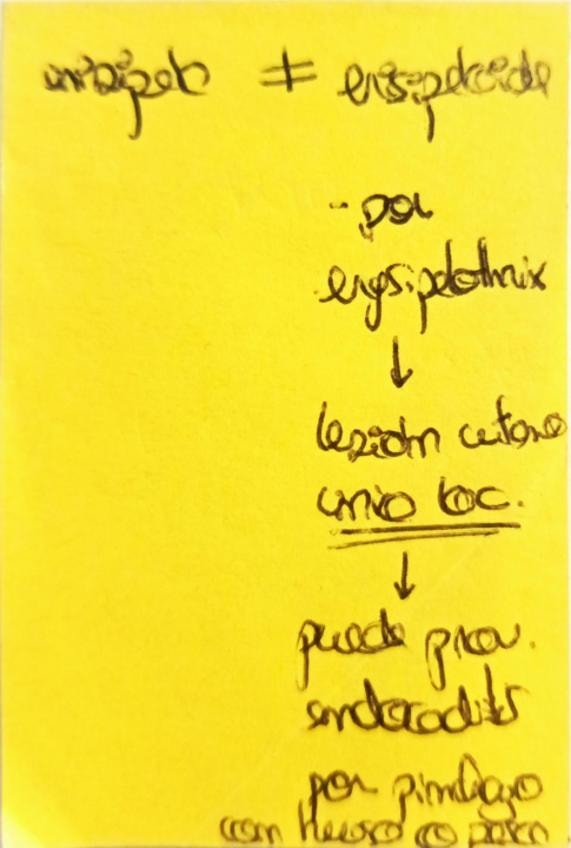 erisipela ≠ erisipeloide
- por
erysipelothrix
↓
lesión cutanea
↓
puede prov.
endocarditis
por pinchazo
con hueso o